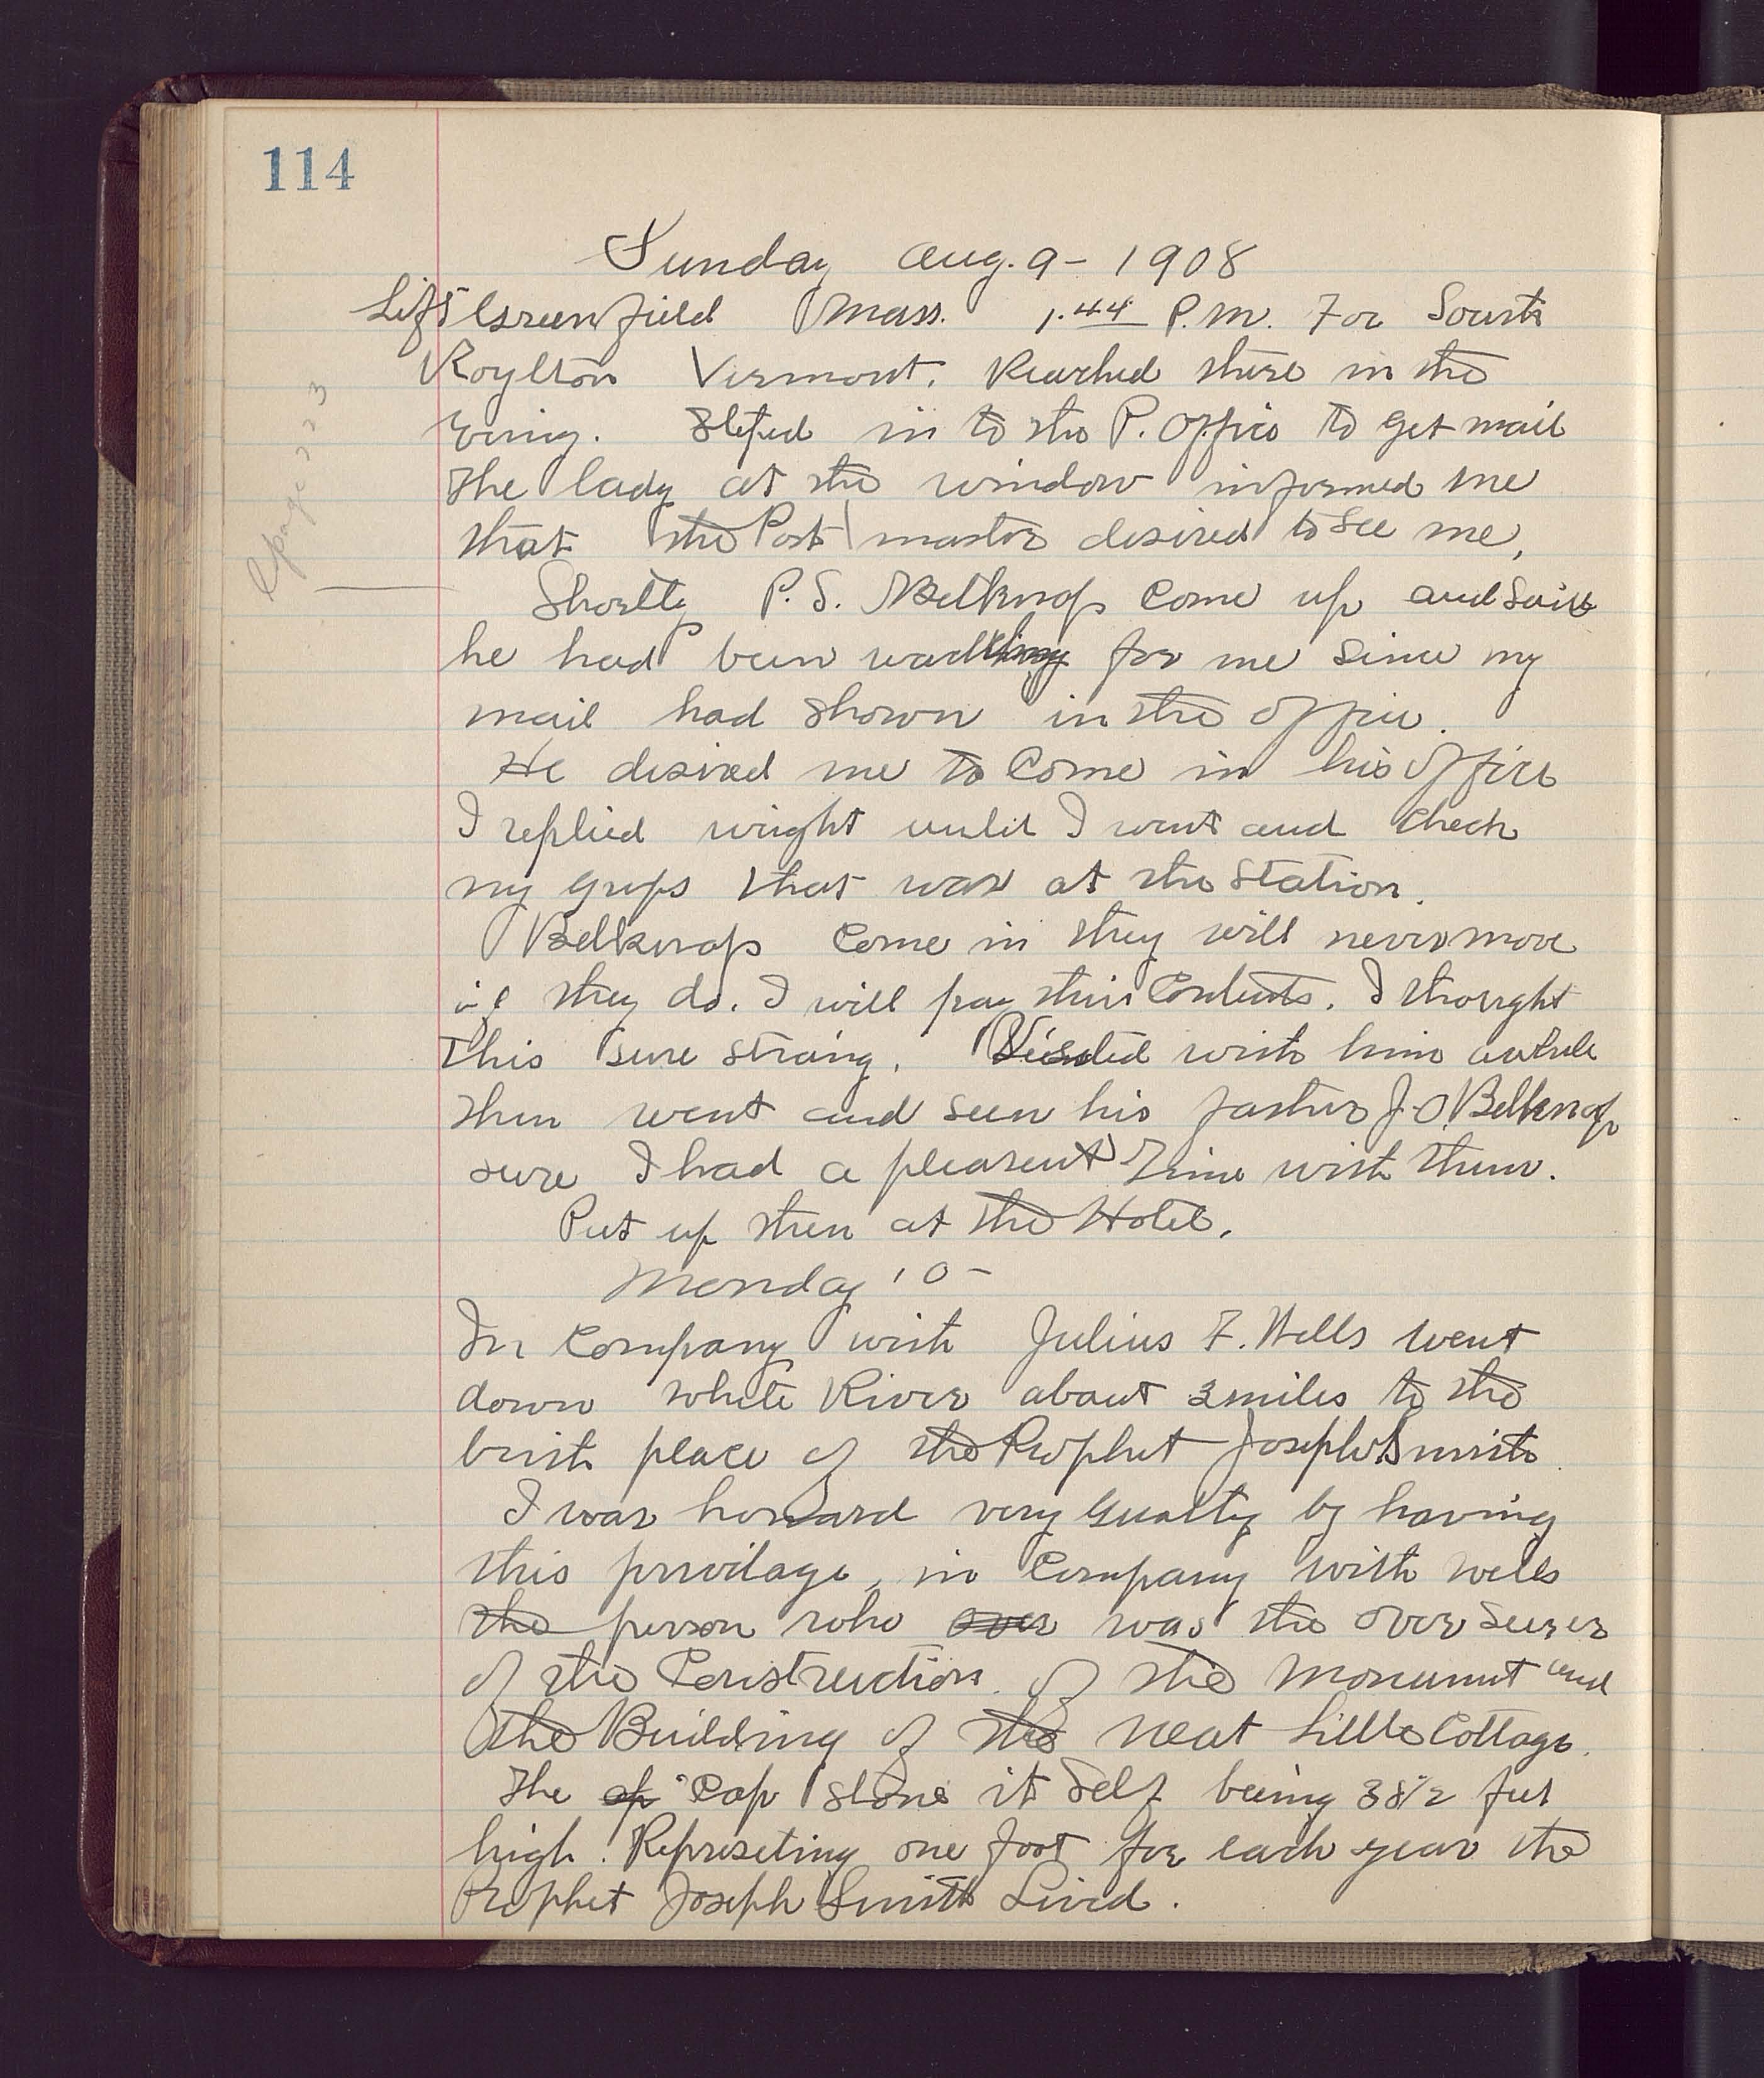 114
Sunday Aug. 9 - 1908
Left Greenfield Mass. 1.44 P.M. For South
Roylton Vermont. Reached there in the
Evning. Steped in to the P. Office to get mail
The lady at the window informed me
that the Post master desired to see me,
Shortly P. S. Belknap Come up and said
he had been watching for me since my
mail had shown in the office.
He desired me to Come in his office
I replied wright untill I went and Check
my grips that was at the station.
Belknap Come in they will never move
if they do. I will pay thier Contents. I thought
This sure strang. Visited with him awhile
then went and seen his father J. O. Belknap
sure I had a pleasent Time with them.
Put up then at the Hotel.
Monday 10 -
In Company with Julius F. Wells went
down White River about 3 miles to the
birth place of the Prophet Joseph Smith
I was honard very greatly by having
this privilage, in Company with Wells
the person who over was the over seerer
of the Construction of the Monumnt and
the Building of the neat Little Cottage.
The ap Cap stone it self being 38 1/2 feet
high. Represeting one foot for each year the
Prophet Joseph Smith Lived.
page 223